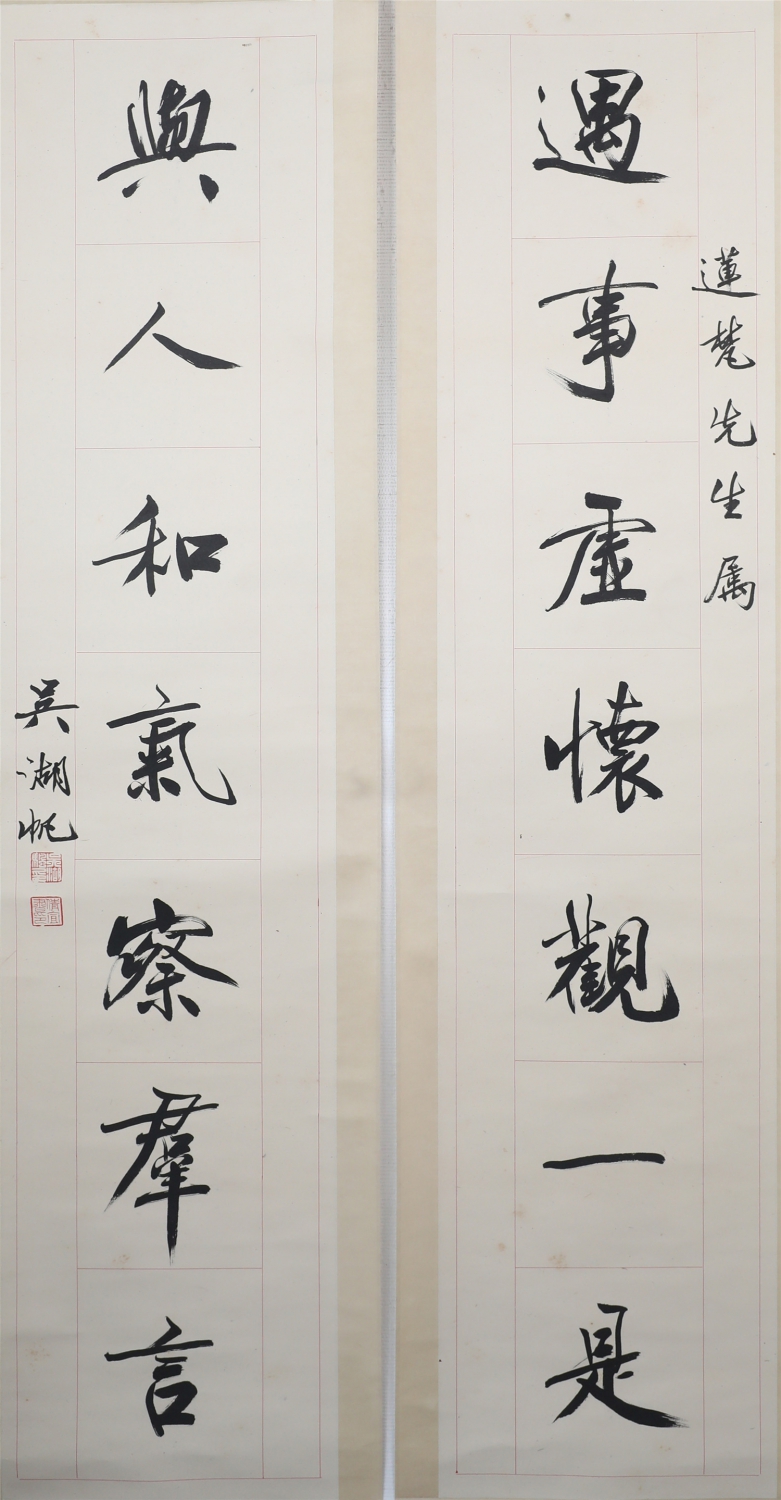 蓮梵先生属
遇事虛懷觀一是
與人和氣察羣言
吳湖帆